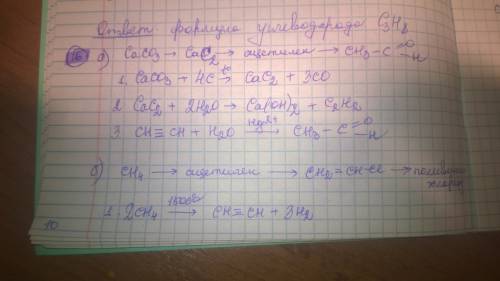 Ответ: формула углеводорода C₃H₈
16 а) CaCO₃ → CaC₂ → ацетилен → CH₃-C=O-H
1. CaCO₃ + 4C →t° CaC₂ + 3CO
2. CaC₂ + 2H₂O → Ca(OH)₂ + C₂H₂
3. CH≡CH + H₂O →Hg²⁺ CH₃-C=O-H
б) CH₄ → ацетилен → CH₂=CH-Cl →
1. 2CH₄ →1500°C CH≡CH + 3H₂
10